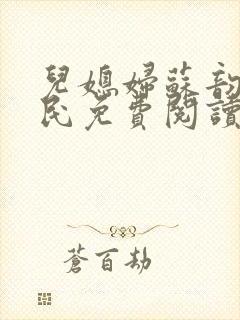 兒媳婦蘇韵
民免費閱讀
蒼百劫